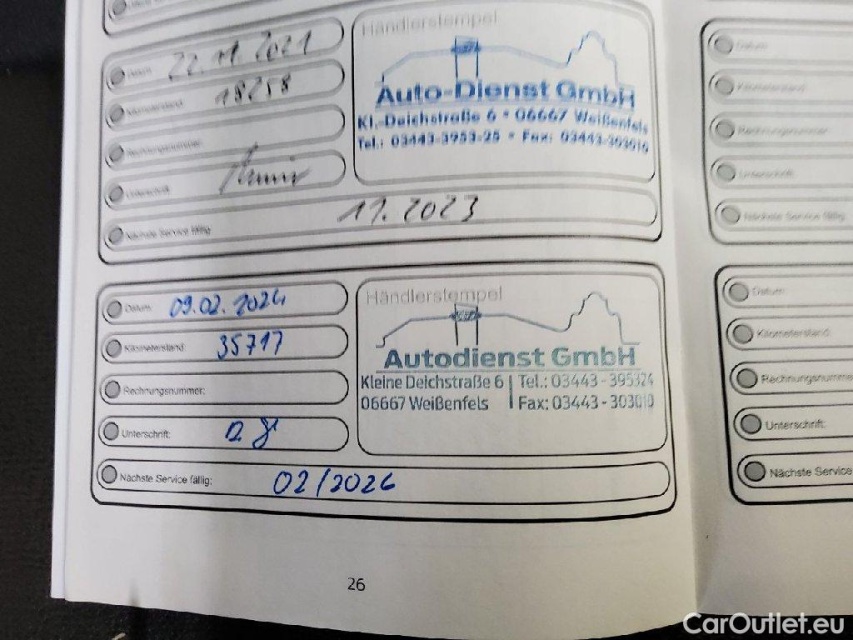 Händlerstempel
Datum: 22.11.2021
Kilometerstand 18258
Auto-Dienst GmbH
Kl.-Deichstraße 6 • 06667 Weißenfels
Tel.: 03443-3953-25 • Fax: 03443-303010
Rechnungsnummer:
Unterschrift:
Nächste Service fällig: 11.2023
Händlerstempel
Datum: 09.02.2024
Kilometerstand 35717
Autodienst GmbH
Kleine Deichstraße 6 | Tel.: 03443 - 395324
06667 Weißenfels | Fax: 03443 - 303010
Rechnungsnummer:
Unterschrift:
Nächste Service fällig: 02/2026
26
Datum:
Kilometerstand
Rechnungsnummer
Unterschrift:
Nächste Service fällig
Datum:
Kilometerstand
Rechnungsnumme
Unterschrift:
Nächste Service
CarOutlet.eu